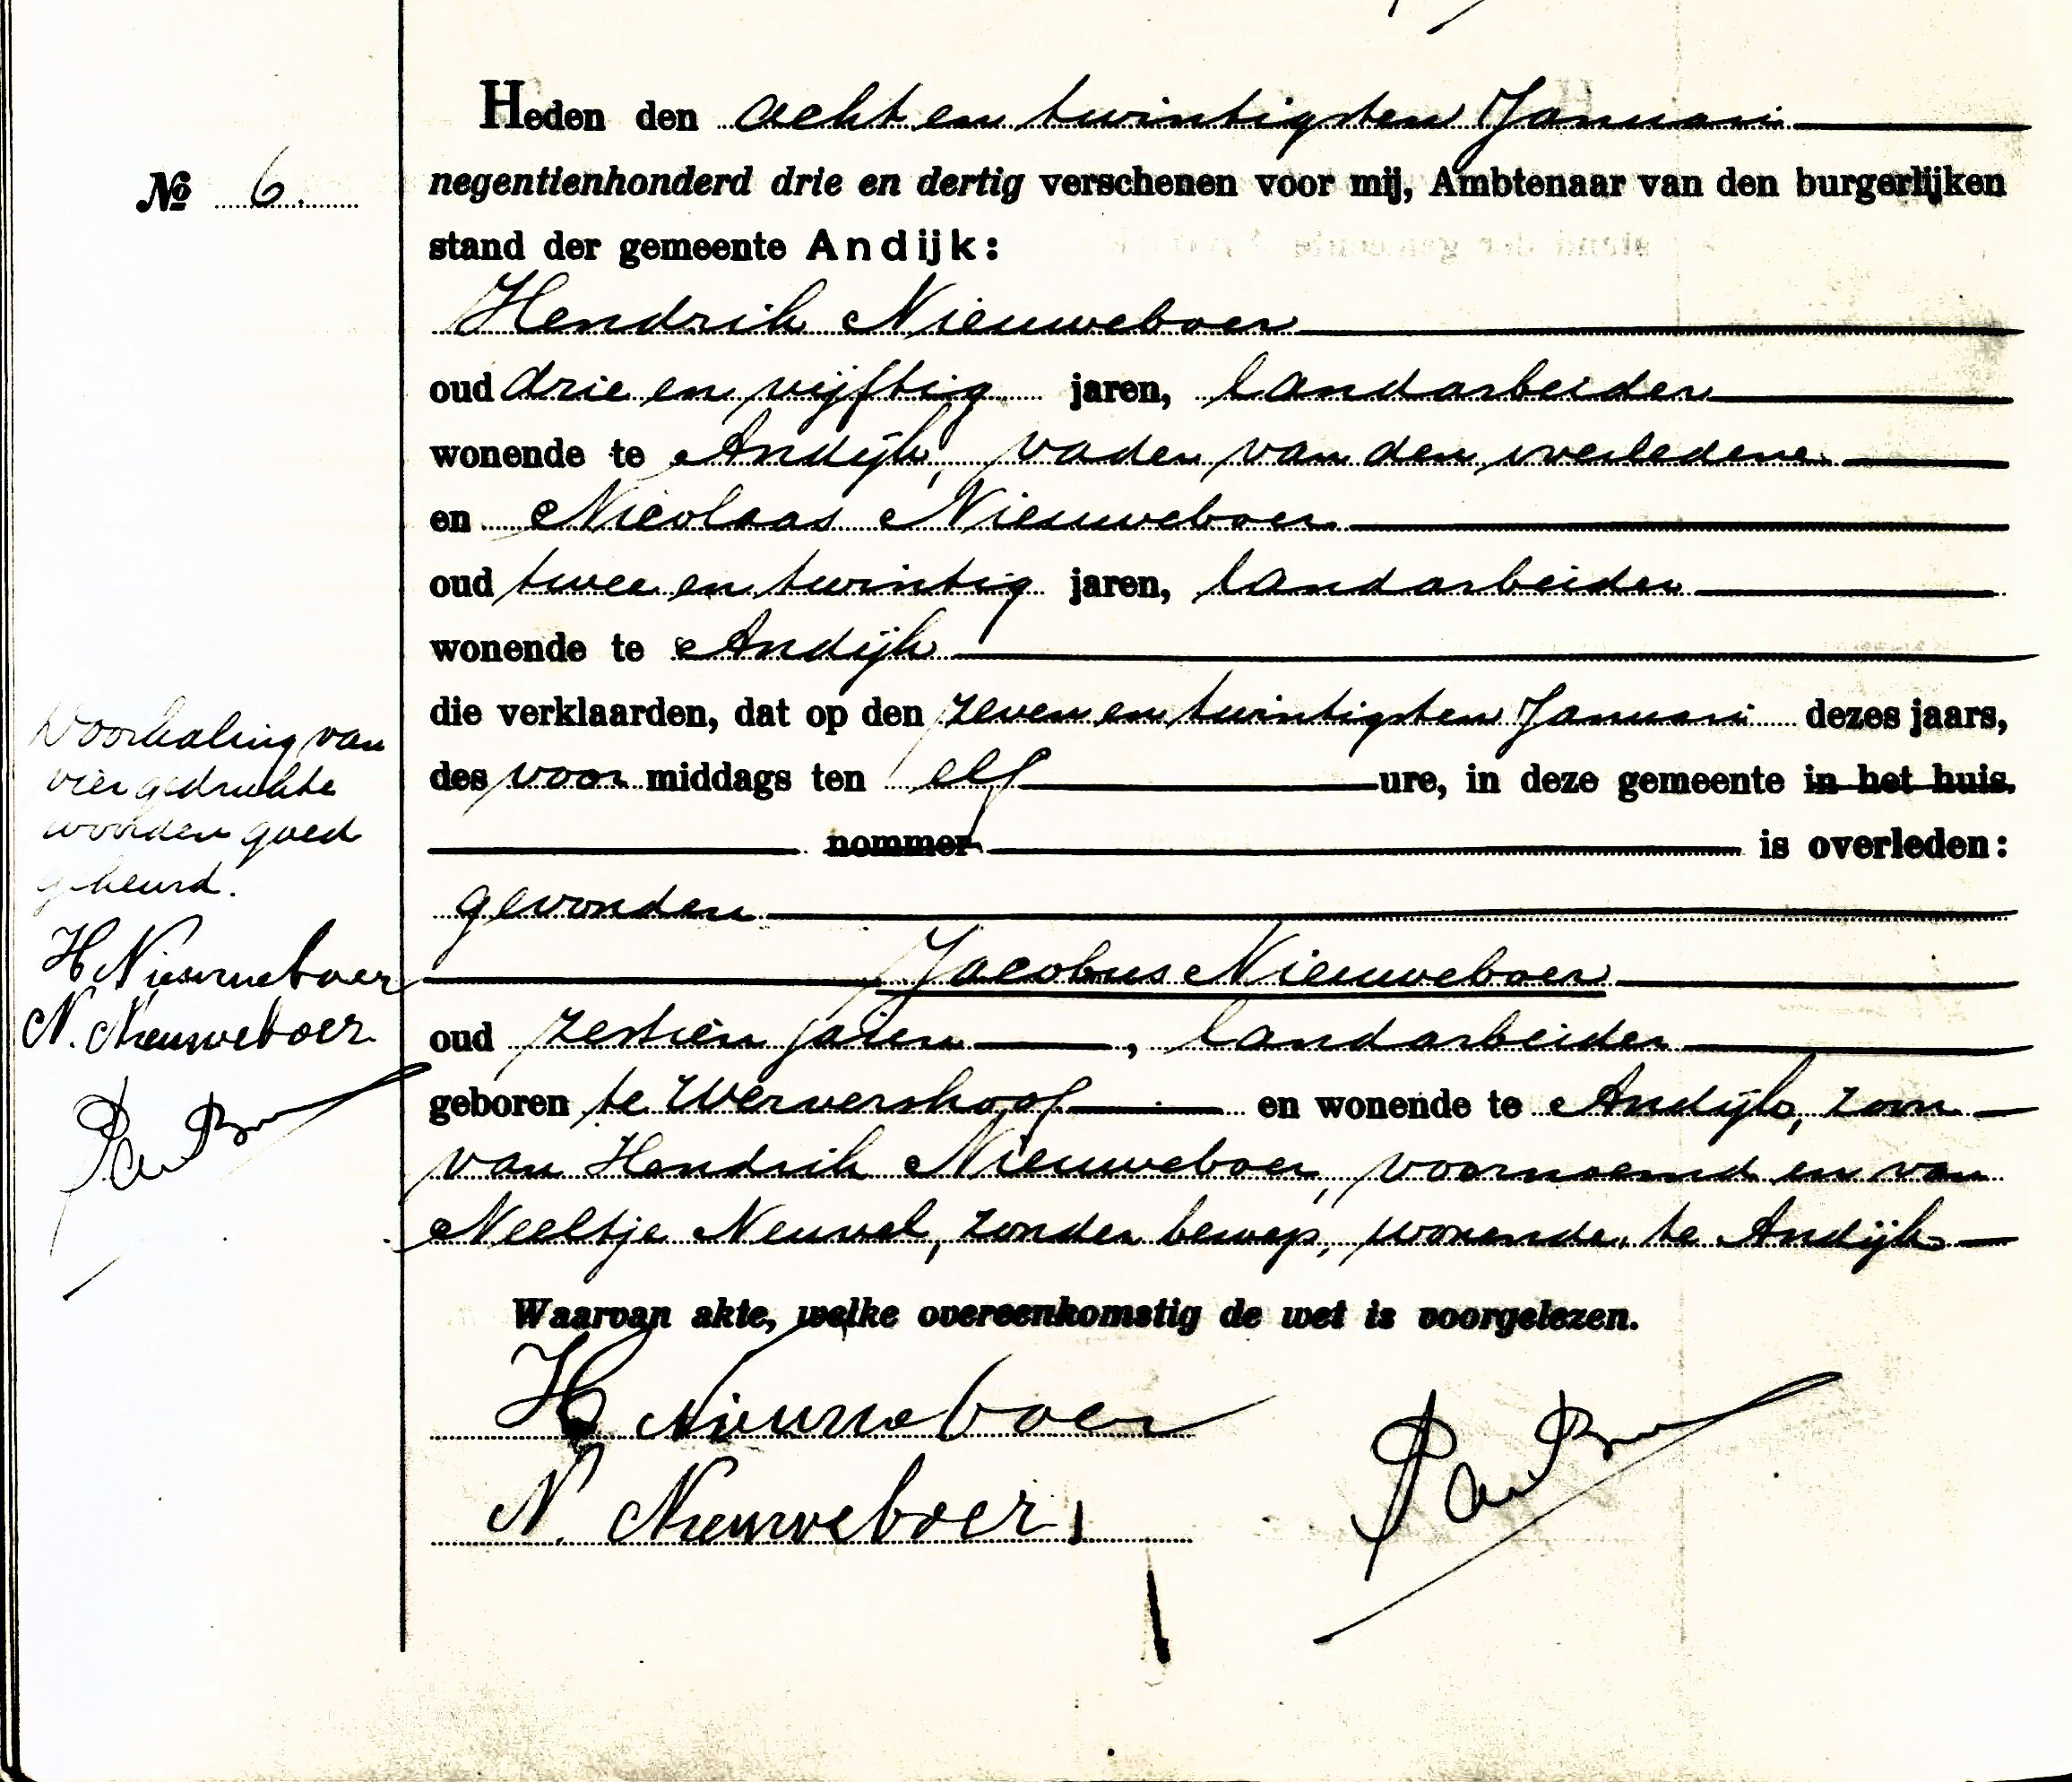 Heden den acht en twintigsten Januari
No 6.
negentienhonderd drie en dertig verschenen voor mij, Ambtenaar van den burgerlijken
stand der gemeente Andijk:
Hendrik Nieuweboer
oud drie en vijftig jaren, landarbeider
wonende te Andijk, vader van den overledene
en Nicolaas Nieuweboer
oud twee en twintig jaren, landarbeider
wonende te Andijk
die verklaarden, dat op den zeven en twintigsten Januari dezes jaars,
des voor middags ten elf ure, in deze gemeente in het huis.
nommer is overleden:
gevonden
Jacobus Nieuweboer
oud zestien jaren, landarbeider
geboren te Wervershoof en wonende te Andijk, zoon
van Hendrik Nieuweboer, voornoemd en van
Neeltje Neuvel, zonder beroep, wonende te Andijk
Waarvan akte, welke overeenkomstig de wet is voorgelezen.
H Nieuweboer
N. Nieuweboer
Doorhaling van
vier gedrukte
woorden goed
gekeurd.
H Nieuweboer
N. Nieuweboer